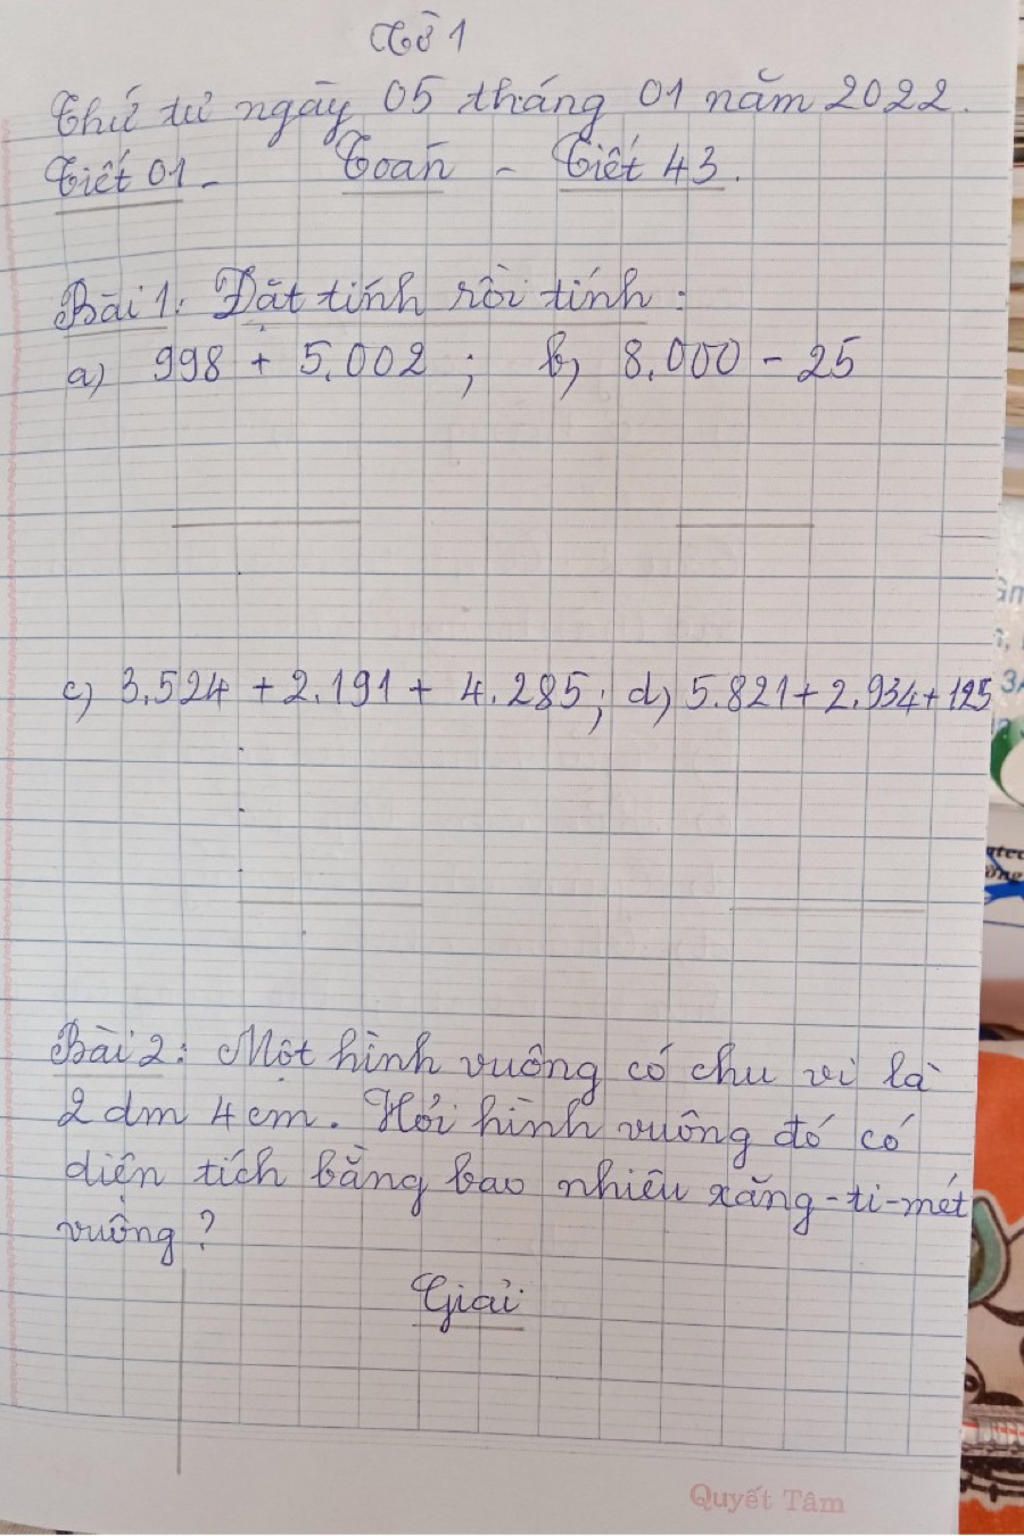 Tờ 1
Thứ tư ngày 05 tháng 01 năm 2022.
Tiết 01 - Toán - Tiết 43.
Bài 1: Đặt tính rồi tính:
a) 998 + 5.002 ; b) 8.000 - 25
c) 3.524 + 2.191 + 4.285; d) 5.821 + 2.934 + 125
Bài 2: Một hình vuông có chu vi là
2 dm 4 cm. Hỏi hình vuông đó có
diện tích bằng bao nhiêu xăng-ti-mét
vuông?
Giải
Quyết Tâm